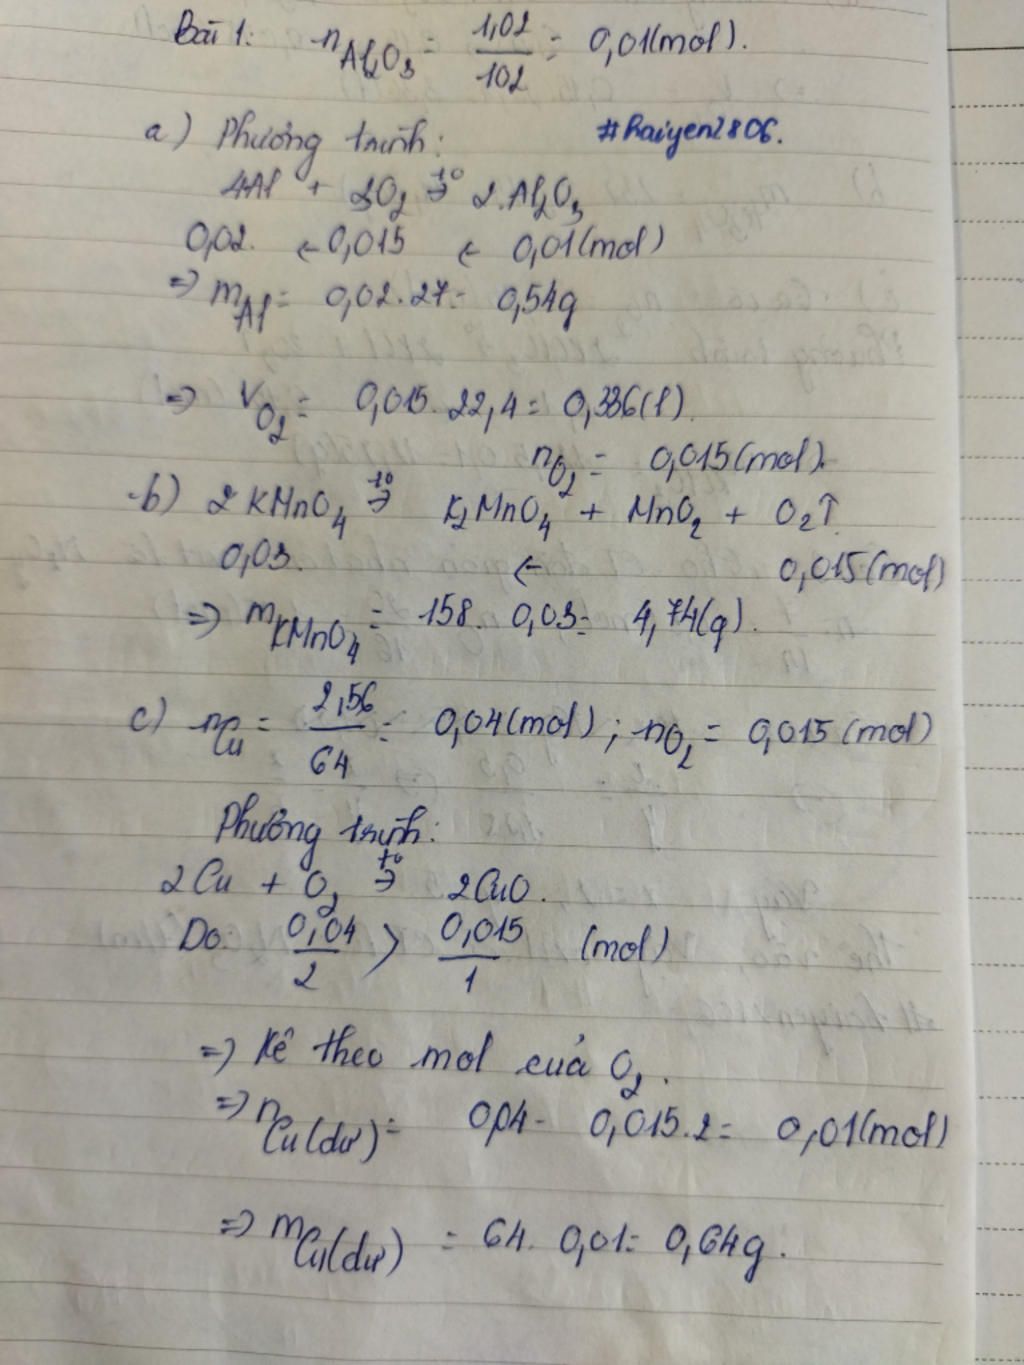 Bài 1: nAl₂O₃ = 1,02/102 = 0,01(mol).
a) Phương trình: #haiyen2806.
4Al + 3O₂ →t⁰ 2.Al₂O₃
0,02. ← 0,015 ← 0,01(mol)
=> mAl = 0,02.27 = 0,54g
=> VO₂ = 0,015.22,4 = 0,336(l).
nO₂ = 0,015(mol).
b) 2KMnO₄ →t⁰ K₂MnO₄ + MnO₂ + O₂↑
0,03. ← 0,015(mol)
=> mKMnO₄ = 158. 0,03 = 4,74(g).
c) nCu = 2,56/64 = 0,04(mol); nO₂ = 0,015(mol)
Phương trình:
2Cu + O₂ →t⁰ 2CuO.
Do: 0,04/2 > 0,015/1 (mol)
=> Kê theo mol của O₂.
=> nCu(dư) = 0,04 - 0,015.2 = 0,01(mol)
=> mCu(dư) = 64. 0,01 = 0,64g.